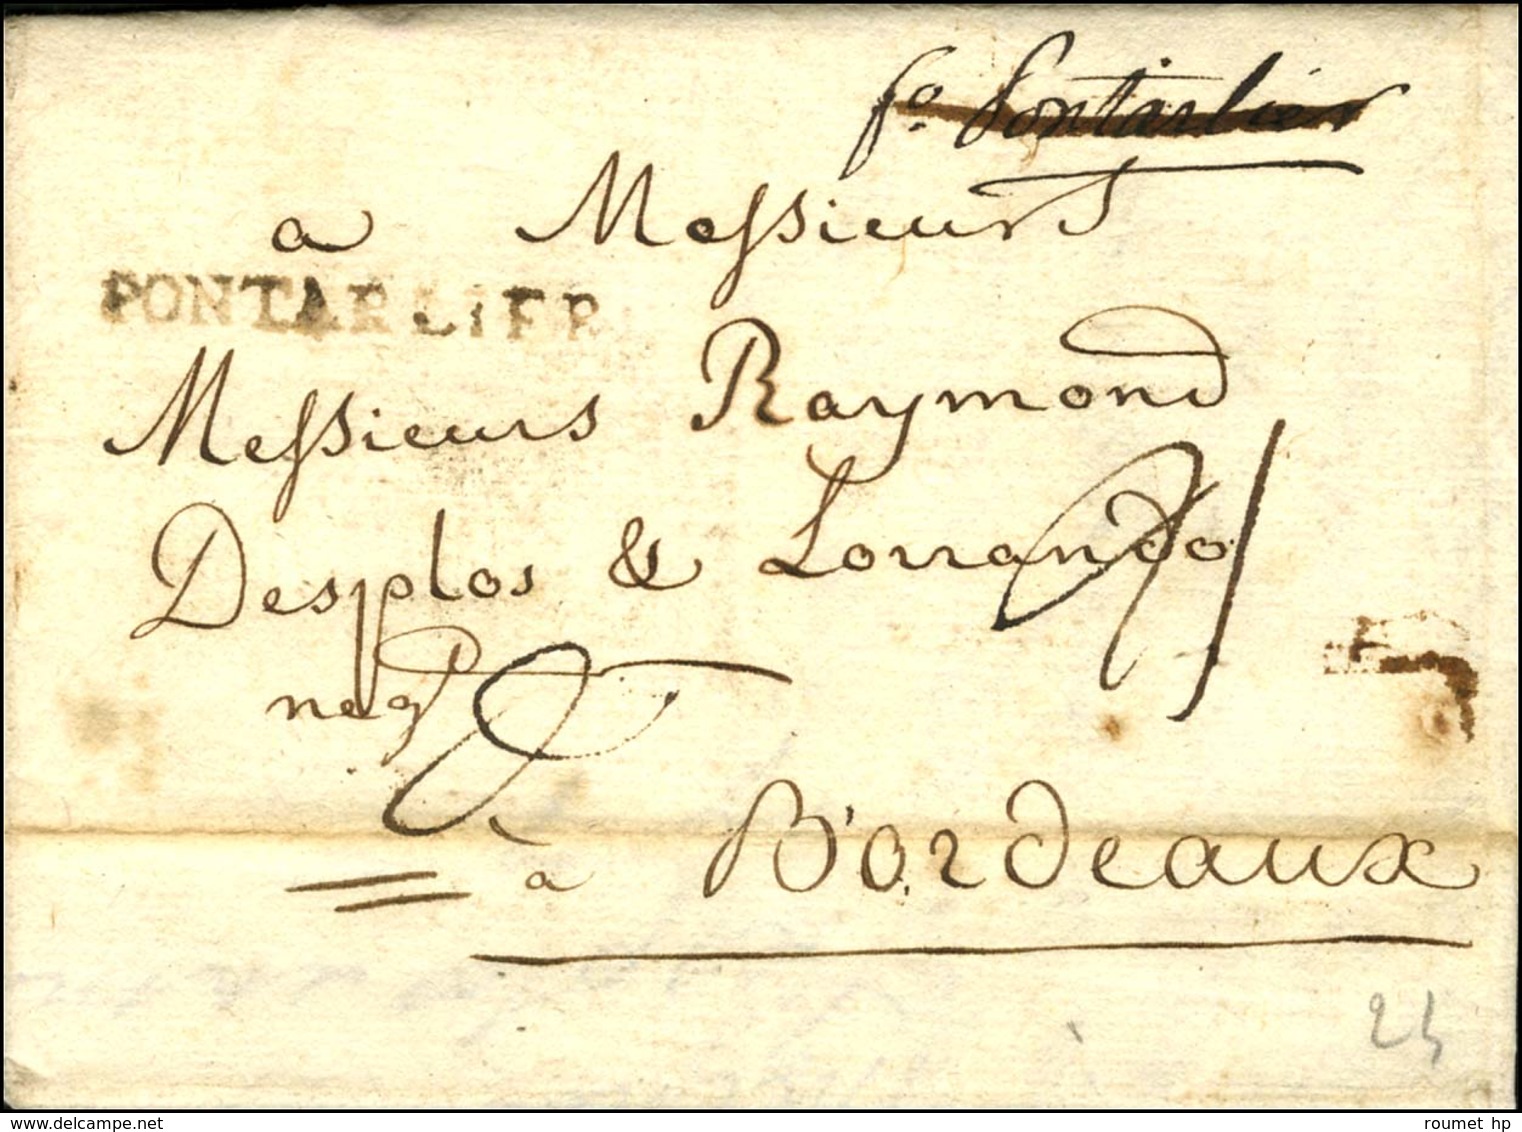 fo. Pontarlier
a Messieurs
PONTARLIER
Messieurs Raymond
Desplos & Lorrando
neg
à Bordeaux
24
www.delcampe.net
roumet hp